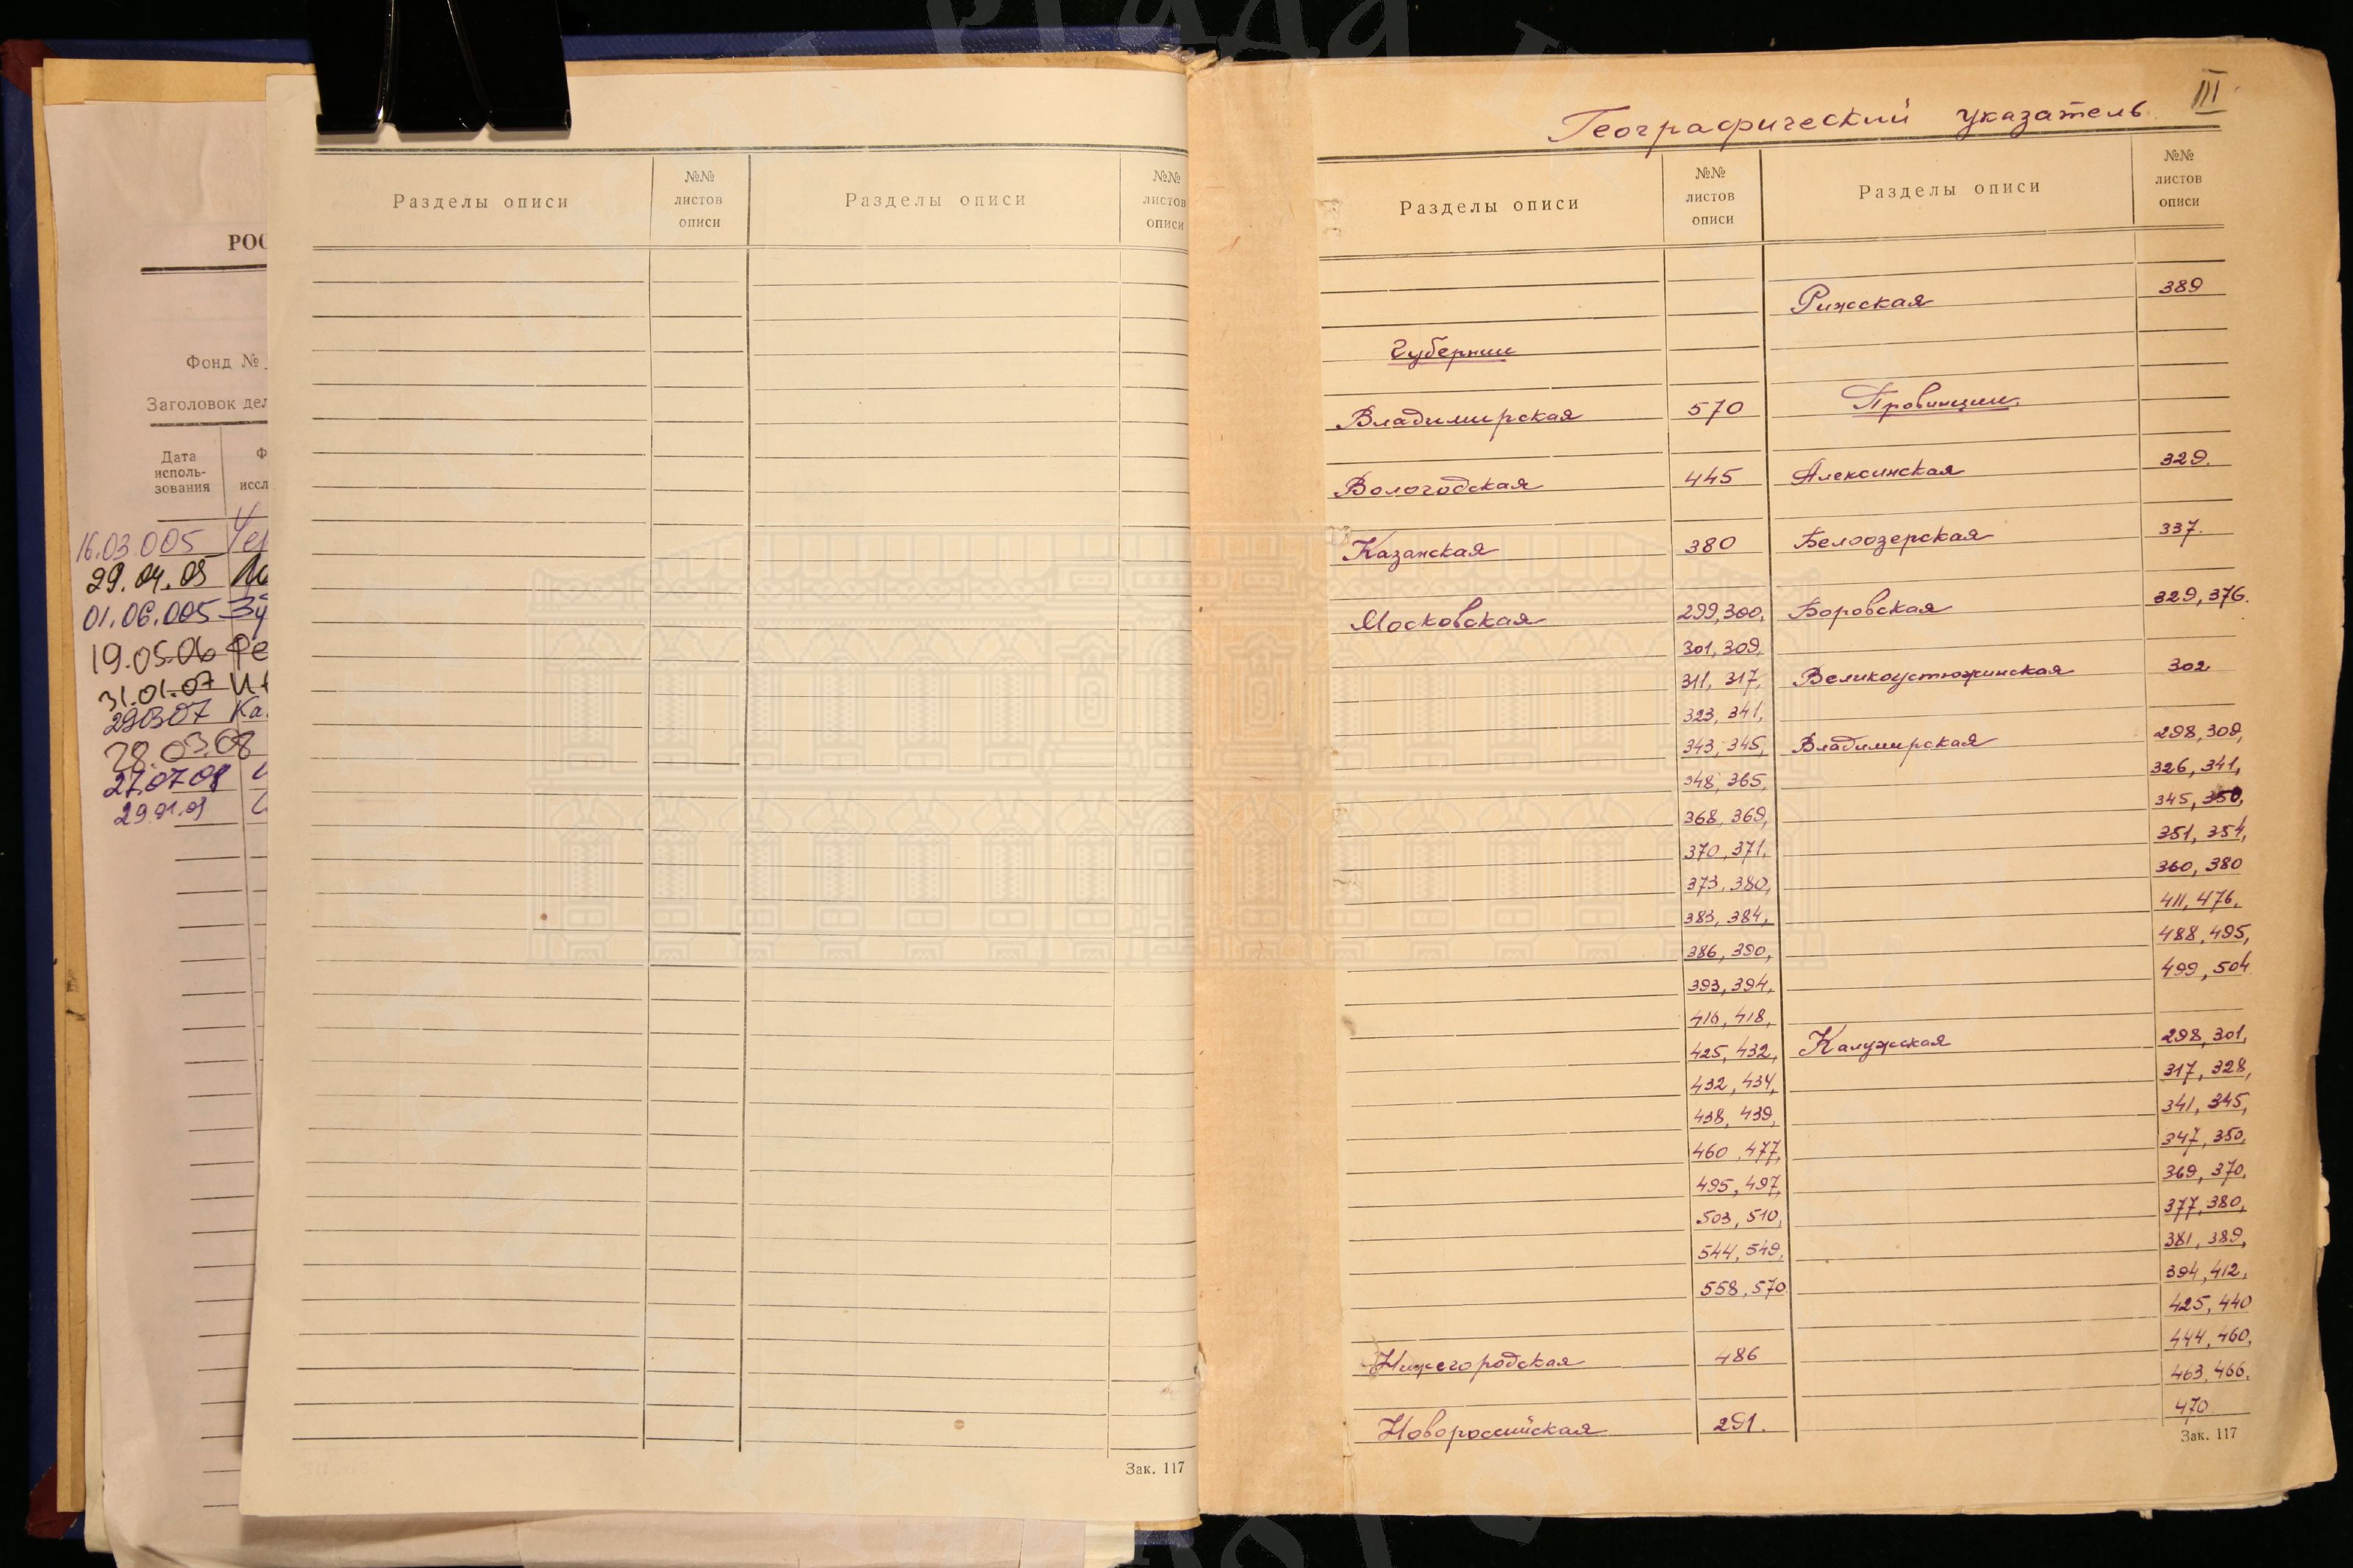 РОС
Фонд №
Заголовок дел
Дата
исполь-
зования
Ф
иссл
16.03.005
29.04.05
01.06.005
19.05.06
31.01.07
29.03.07
28.03.08
27.07.08
29.01.09
Разделы описи
№№
листов
описи
Разделы описи
№№
листов
описи
Зак. 117
III
Географический указатель
Разделы описи
№№
листов
описи
Разделы описи
№№
листов
описи
Рижская 389
Губернии
Владимирская 570 Провинции
Вологодская 445 Алексинская 329.
Казанская 380 Белоозерская 337.
Московская 299,300, Боровская 329,376.
301,309,
311, 317, Великоустюжинская 302
323, 341,
343, 345, Владимирская 298,309,
348, 365, 326, 341,
368, 369, 345, 350,
370, 371, 351, 354,
373, 380, 360, 380
383, 384, 411, 476,
386, 390, 488, 495,
393, 394, 499, 504
416, 418,
425, 432, Калужская 298, 301,
432, 434, 317, 328,
438, 439, 341, 345,
460, 477, 347, 350,
495, 497, 369, 370,
503, 510, 377, 380,
544, 549, 381, 389,
558, 570 394, 412,
425, 440
Нижегородская 486 444, 460,
463, 466,
Новороссийская 291. 470
Зак. 117